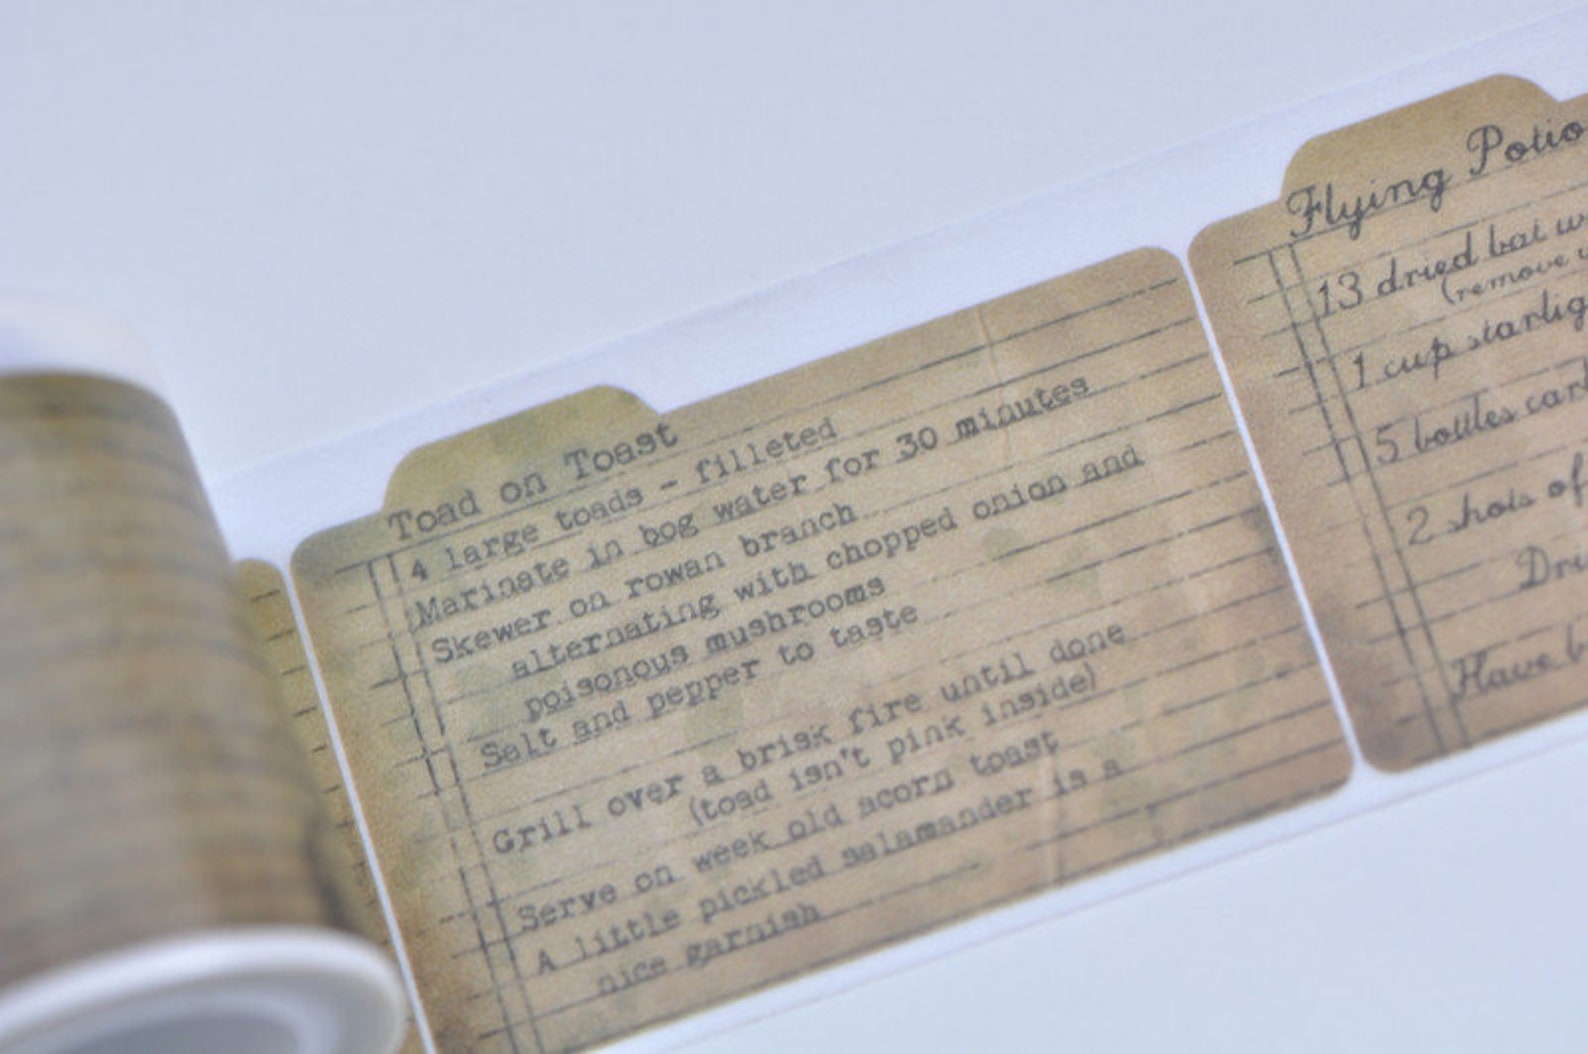 Toad on Toast
4 large toads - filleted
Marinate in bog water for 30 minutes
Skewer on rowan branch
alternating with chopped onion and
poisonous mushrooms
Salt and pepper to taste
Grill over a brisk fire until done
(toad isn't pink inside)
Serve on week old acorn toast
A little pickled salamander is a
nice garnish
Flying Potio
13 dried bat w
(remove
1 cup starlig
5 bottles
2 shots of
Have b